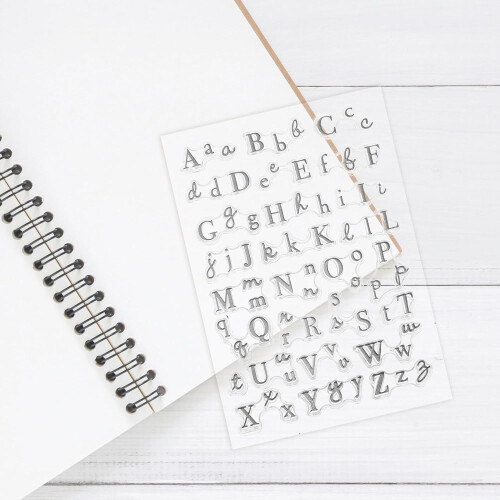 A a a B b b C c c
d d D e e E f f F
G g g H h h i I i
j j J k k K l l L
M m m N n n O o o P
q q Q r r R s s S p p
t t T U u u V v v W w w
X x x Y y y Z z z